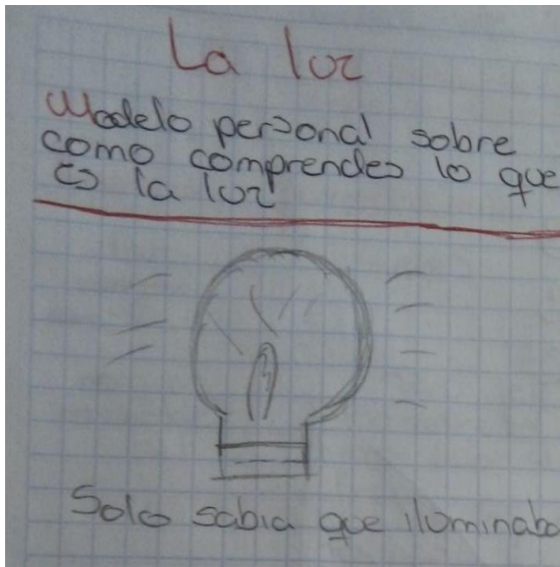 La luz
Modelo personal sobre
como comprendes lo que
es la luz
Solo sabia que iluminaba